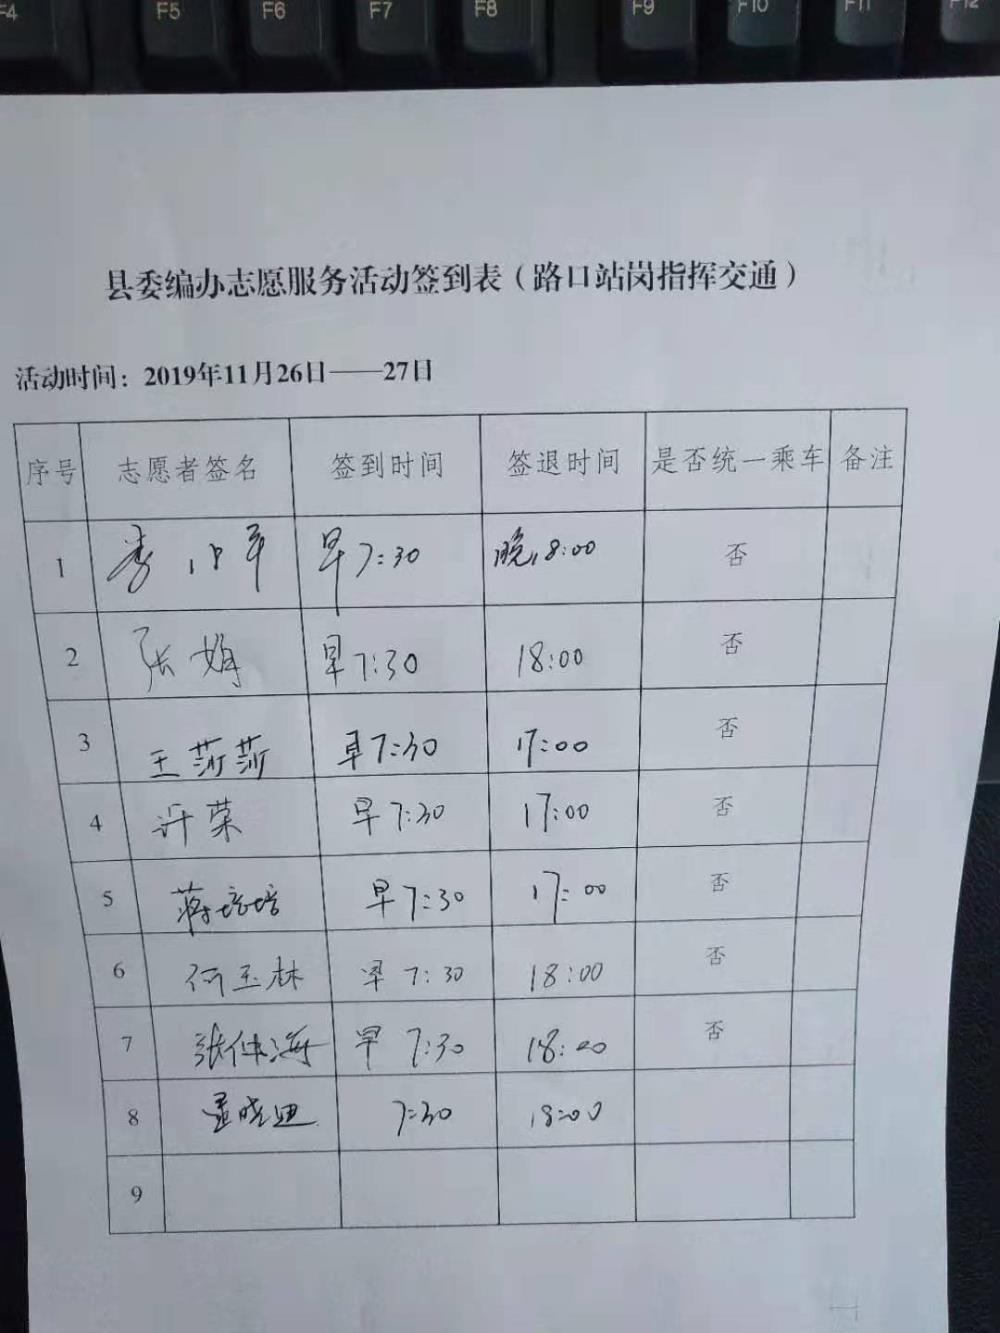 F4 F5 F6 F7 F8 F9 F10 F11 F12
县委编办志愿服务活动签到表（路口站岗指挥交通）
活动时间：2019年11月26日——27日
序号 志愿者签名 签到时间 签退时间 是否统一乘车 备注
1 早7:30 晚18:00 否
2 张娟 早7:30 18:00 否
3 王莎莎 早7:30 17:00 否
4 许荣 早7:30 17:00 否
5 蒋培培 早7:30 17:00 否
6 何玉林 早7:30 18:00 否
7 张仲海 早 7:30 18:00 否
8 董晓迪 7:30 18:00
9